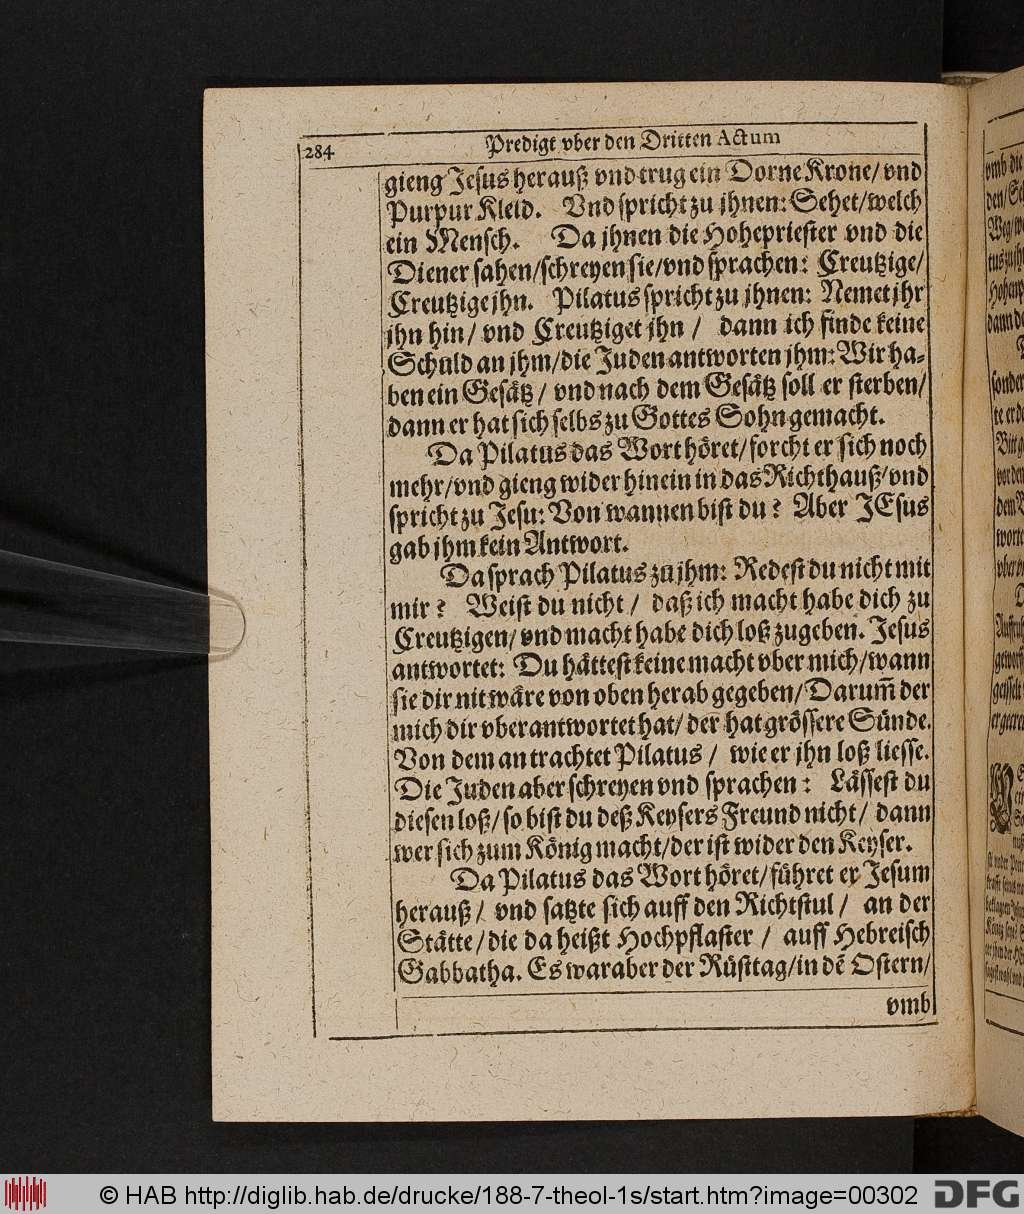 284 Predigt vber den Dritten Actum
gieng Jesus herauß vnd trug ein Dorne Krone/ vnd
Purpur Kleid. Vnd spricht zu jhnen: Sehet/welch
ein Mensch. Da jhnen die Hohepriester vnd die
Diener sahen/schreyen sie/vnd sprachen: Creutzige/
Creutzige jhn. Pilatus spricht zu jhnen: Nemet jhr
jhn hin/ vnd Creutziget jhn / dann ich finde keine
Schuld an jhm/die Juden antworten jhm: Wir ha-
ben ein Gesätz / vnd nach dem Gesätz soll er sterben/
dann er hat sich selbs zu Gottes Sohn gemacht.
Da Pilatus das Wort höret/forcht er sich noch
mehr/vnd gieng wider hinein in das Richthauß/vnd
spricht zu Jesu: Von wannen bist du? Aber JEsus
gab jhm kein Antwort.
Da sprach Pilatus zu jhm: Redest du nicht mit
mir? Weist du nicht / daß ich macht habe dich zu
Creutzigen/ vnd macht habe dich loß zugeben. Jesus
antwortet: Du hättest keine macht vber mich/wann
sie dir nit wäre von oben herab gegeben/Darum̃ der
mich dir vberantwortet hat/ der hat grössere Sünde.
Von dem an trachtet Pilatus / wie er jhn loß liesse.
Die Juden aber schreyen vnd sprachen: Lässest du
diesen loß/ so bist du deß Keysers Freund nicht/ dann
wer sich zum König macht/der ist wider den Keyser.
Da Pilatus das Wort höret/führet er Jesum
herauß / vnd satzte sich auff den Richtstul / an der
Stätte/die da heißt Hochpflaster / auff Hebreisch
Gabbatha. Es war aber der Rüsttag/in dẽ Ostern/
vmb
© HAB http://diglib.hab.de/drucke/188-7-theol-1s/start.htm?image=00302 DFG